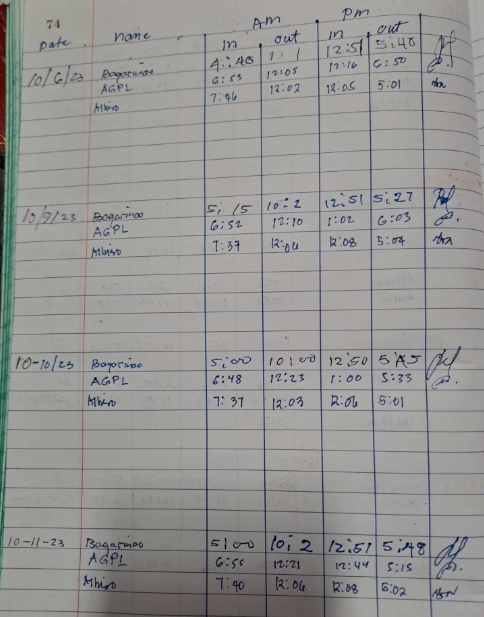 74
Am Pm
Date Name in out in out
10/6/23 Bagarinao 4:48 12:51 5:48
AGPL 6:53 12:05 12:16 6:50
Albino 7:46 12:02 12:05 5:01
10/9/23 Bagarinao 5:15 10:2 12:51 5:27
AGPL 6:52 12:10 1:02 6:03
Albino 7:37 12:04 12:08 5:04
10-10/23 Bagarinao 5:00 10:00 12:50 5:45
AGPL 6:48 12:23 1:00 5:33
Albino 7:37 12:03 12:06 5:01
10-11-23 Bagarinao 5:00 10:2 12:51 5:48
AGPL 6:55 12:21 12:44 5:15
Albino 7:40 12:06 12:08 5:02